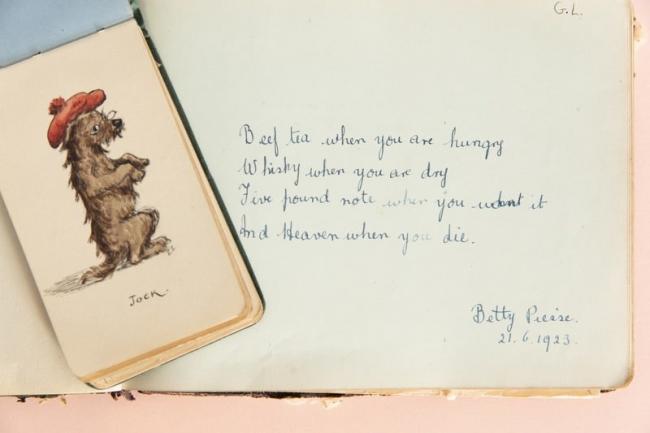 G.L.
Beef tea when you are hungry
Whisky when you are dry
Five pound note when you want it
And Heaven when you die.
Betty
21.6.1923.
Jock.